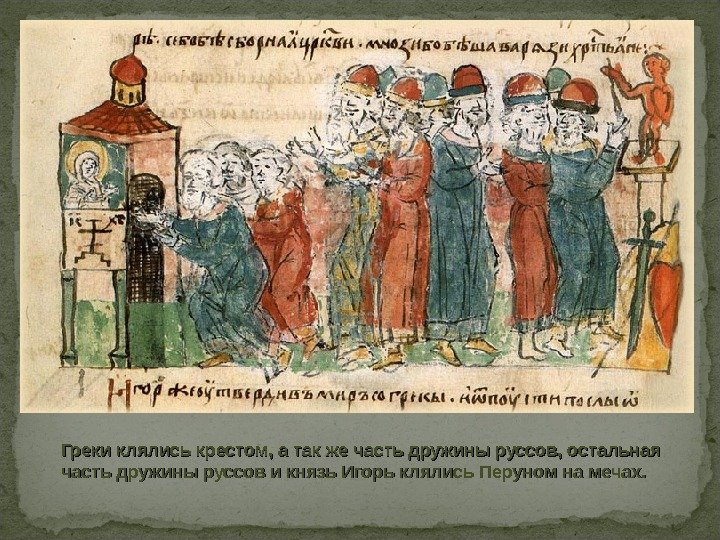 рѣ · себобѣсборнаꙗцрк҃ви · мнозибобѣшаварѧзи хр҃тьꙗне:
ıс хс
Игор҃жеоутвердивъмиръсогрекы · иѿпоустипослыѿ
Греки клялись крестом, а так же часть дружины руссов, остальная
часть дружины руссов и князь Игорь клялись Перуном на мечах.